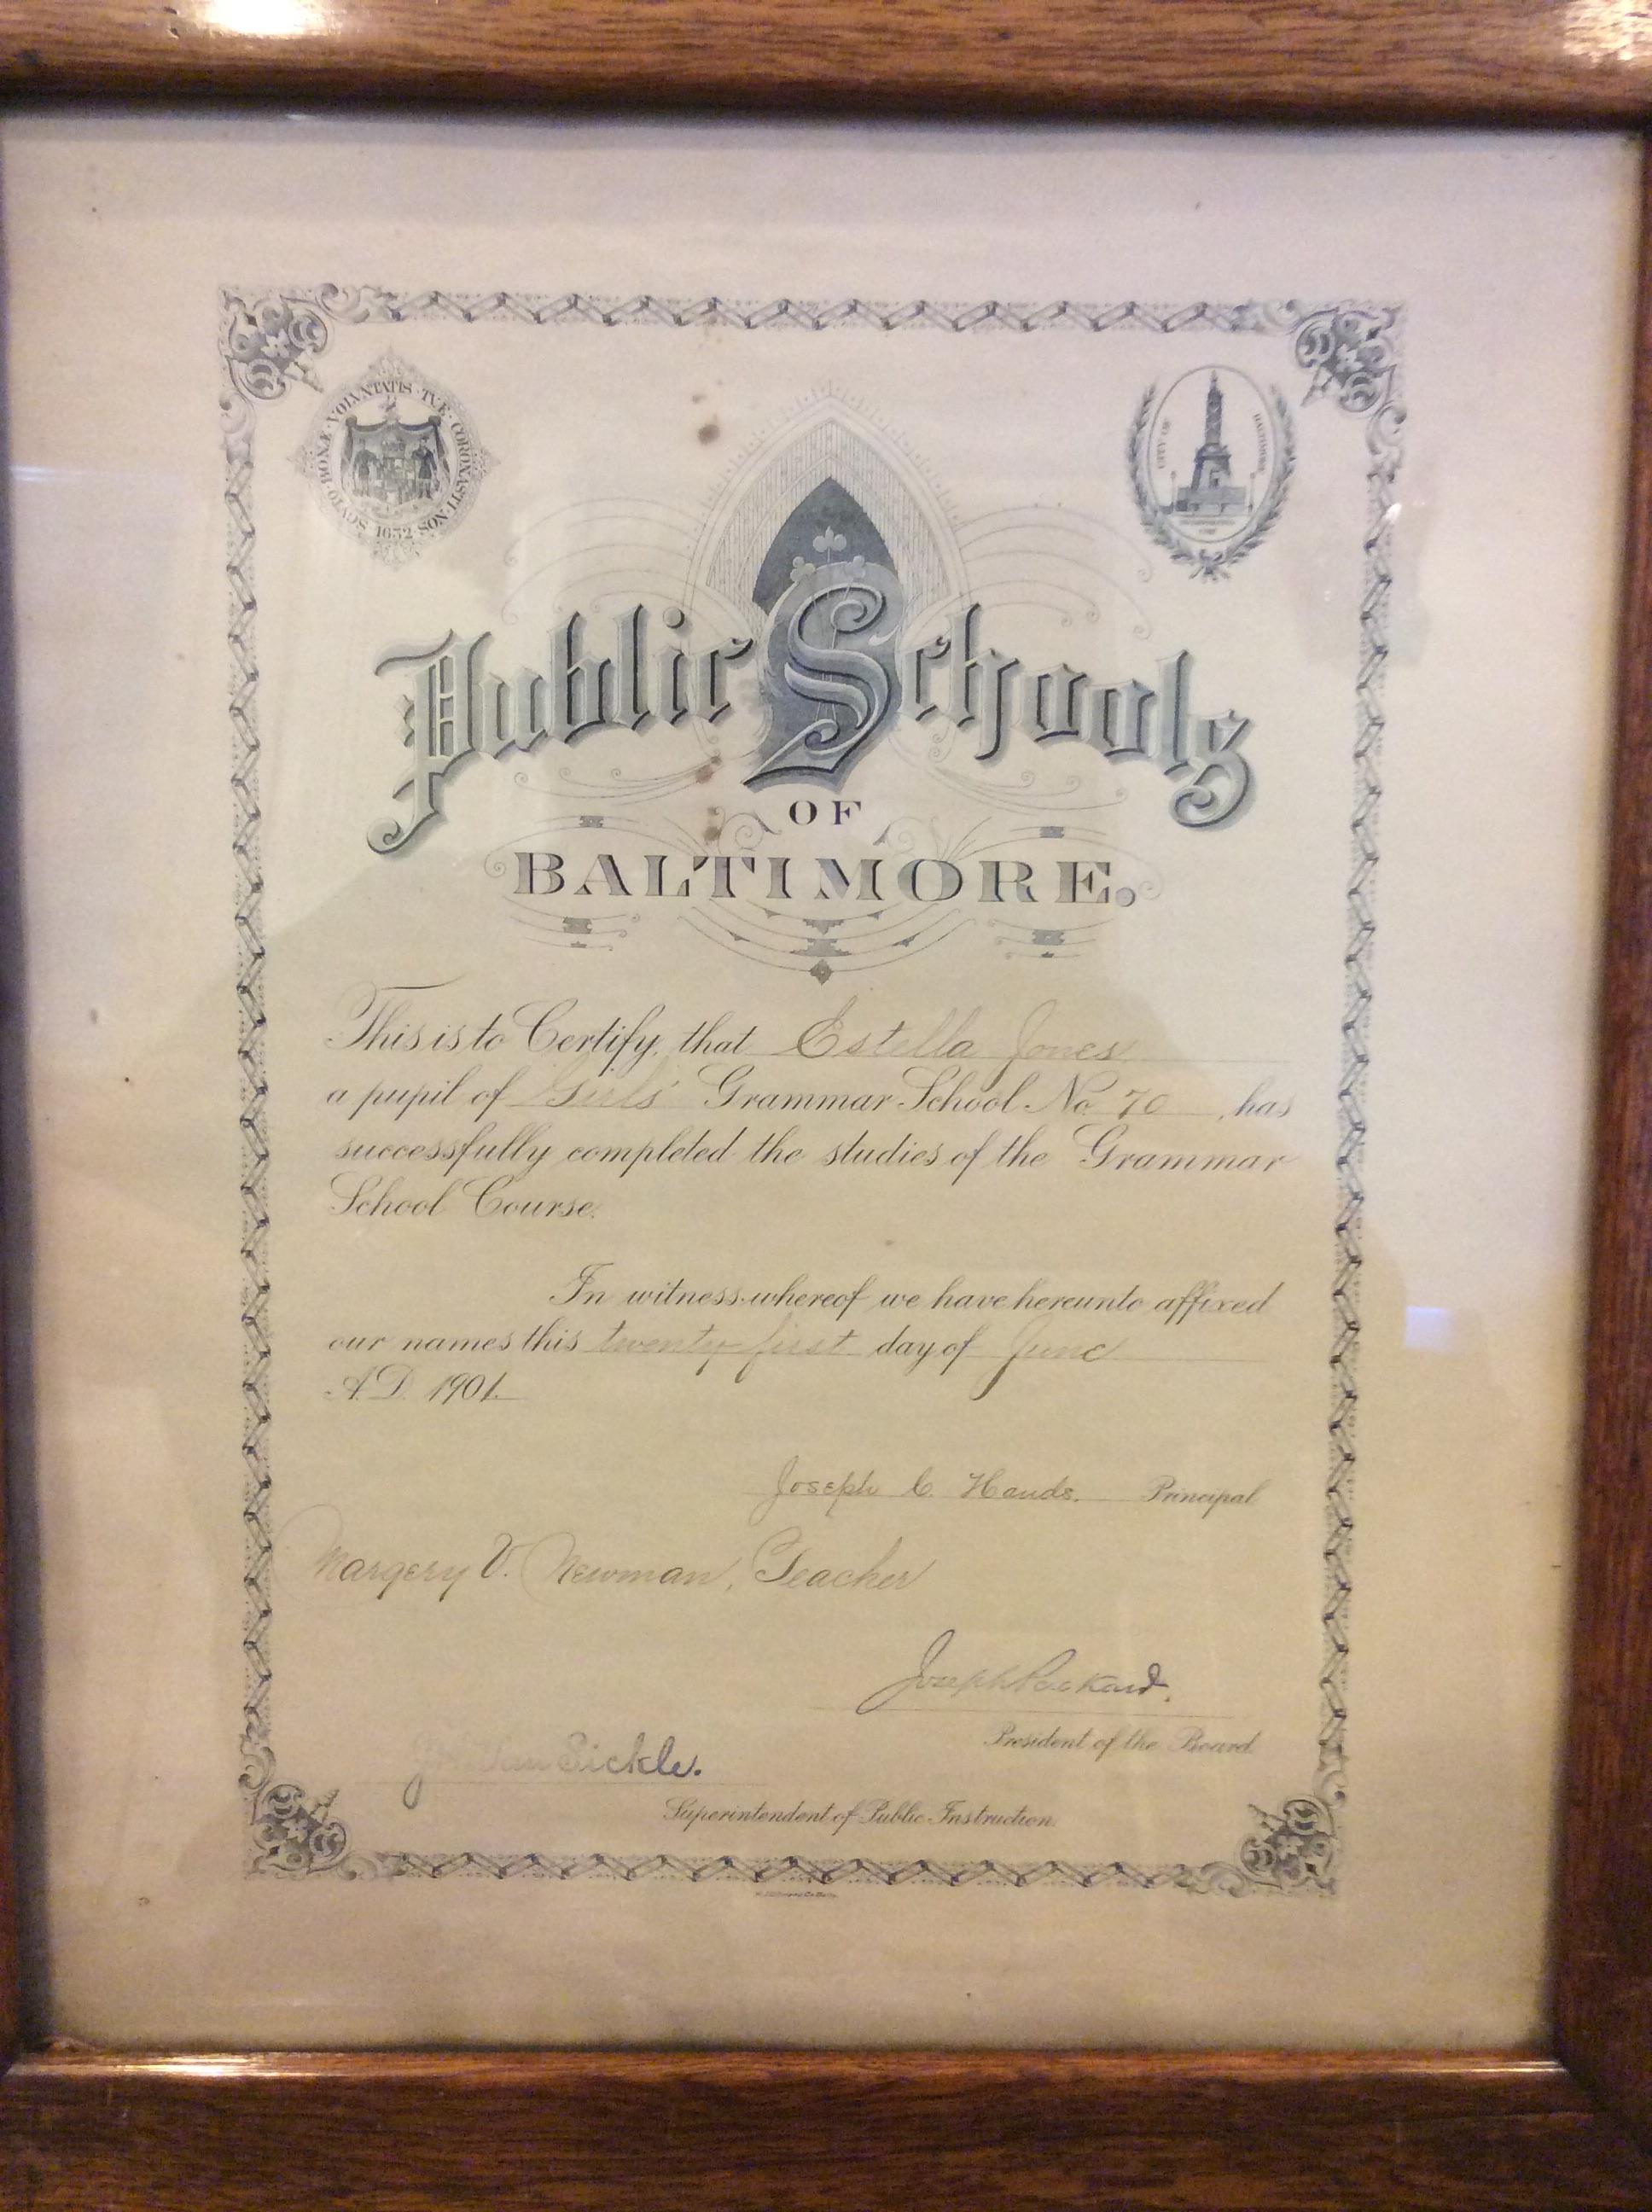 SCVTO · BONÆ · VOLVNTATIS · TVÆ · CORONASTI · NOS
1632
CITY OF BALTIMORE
Public Schools
OF
BALTIMORE.
This is to Certify, that Estella Jones
a pupil of Girls' Grammar School No. 70, has
successfully completed the studies of the Grammar
School Course.
In witness whereof we have hereunto affixed
our names this twenty-first day of June
A.D. 1901.
Joseph C. Hands. Principal
Margery V. Newman, Teacher
Joseph Packard.
President of the Board
Van Sickle.
Superintendent of Public Instruction.